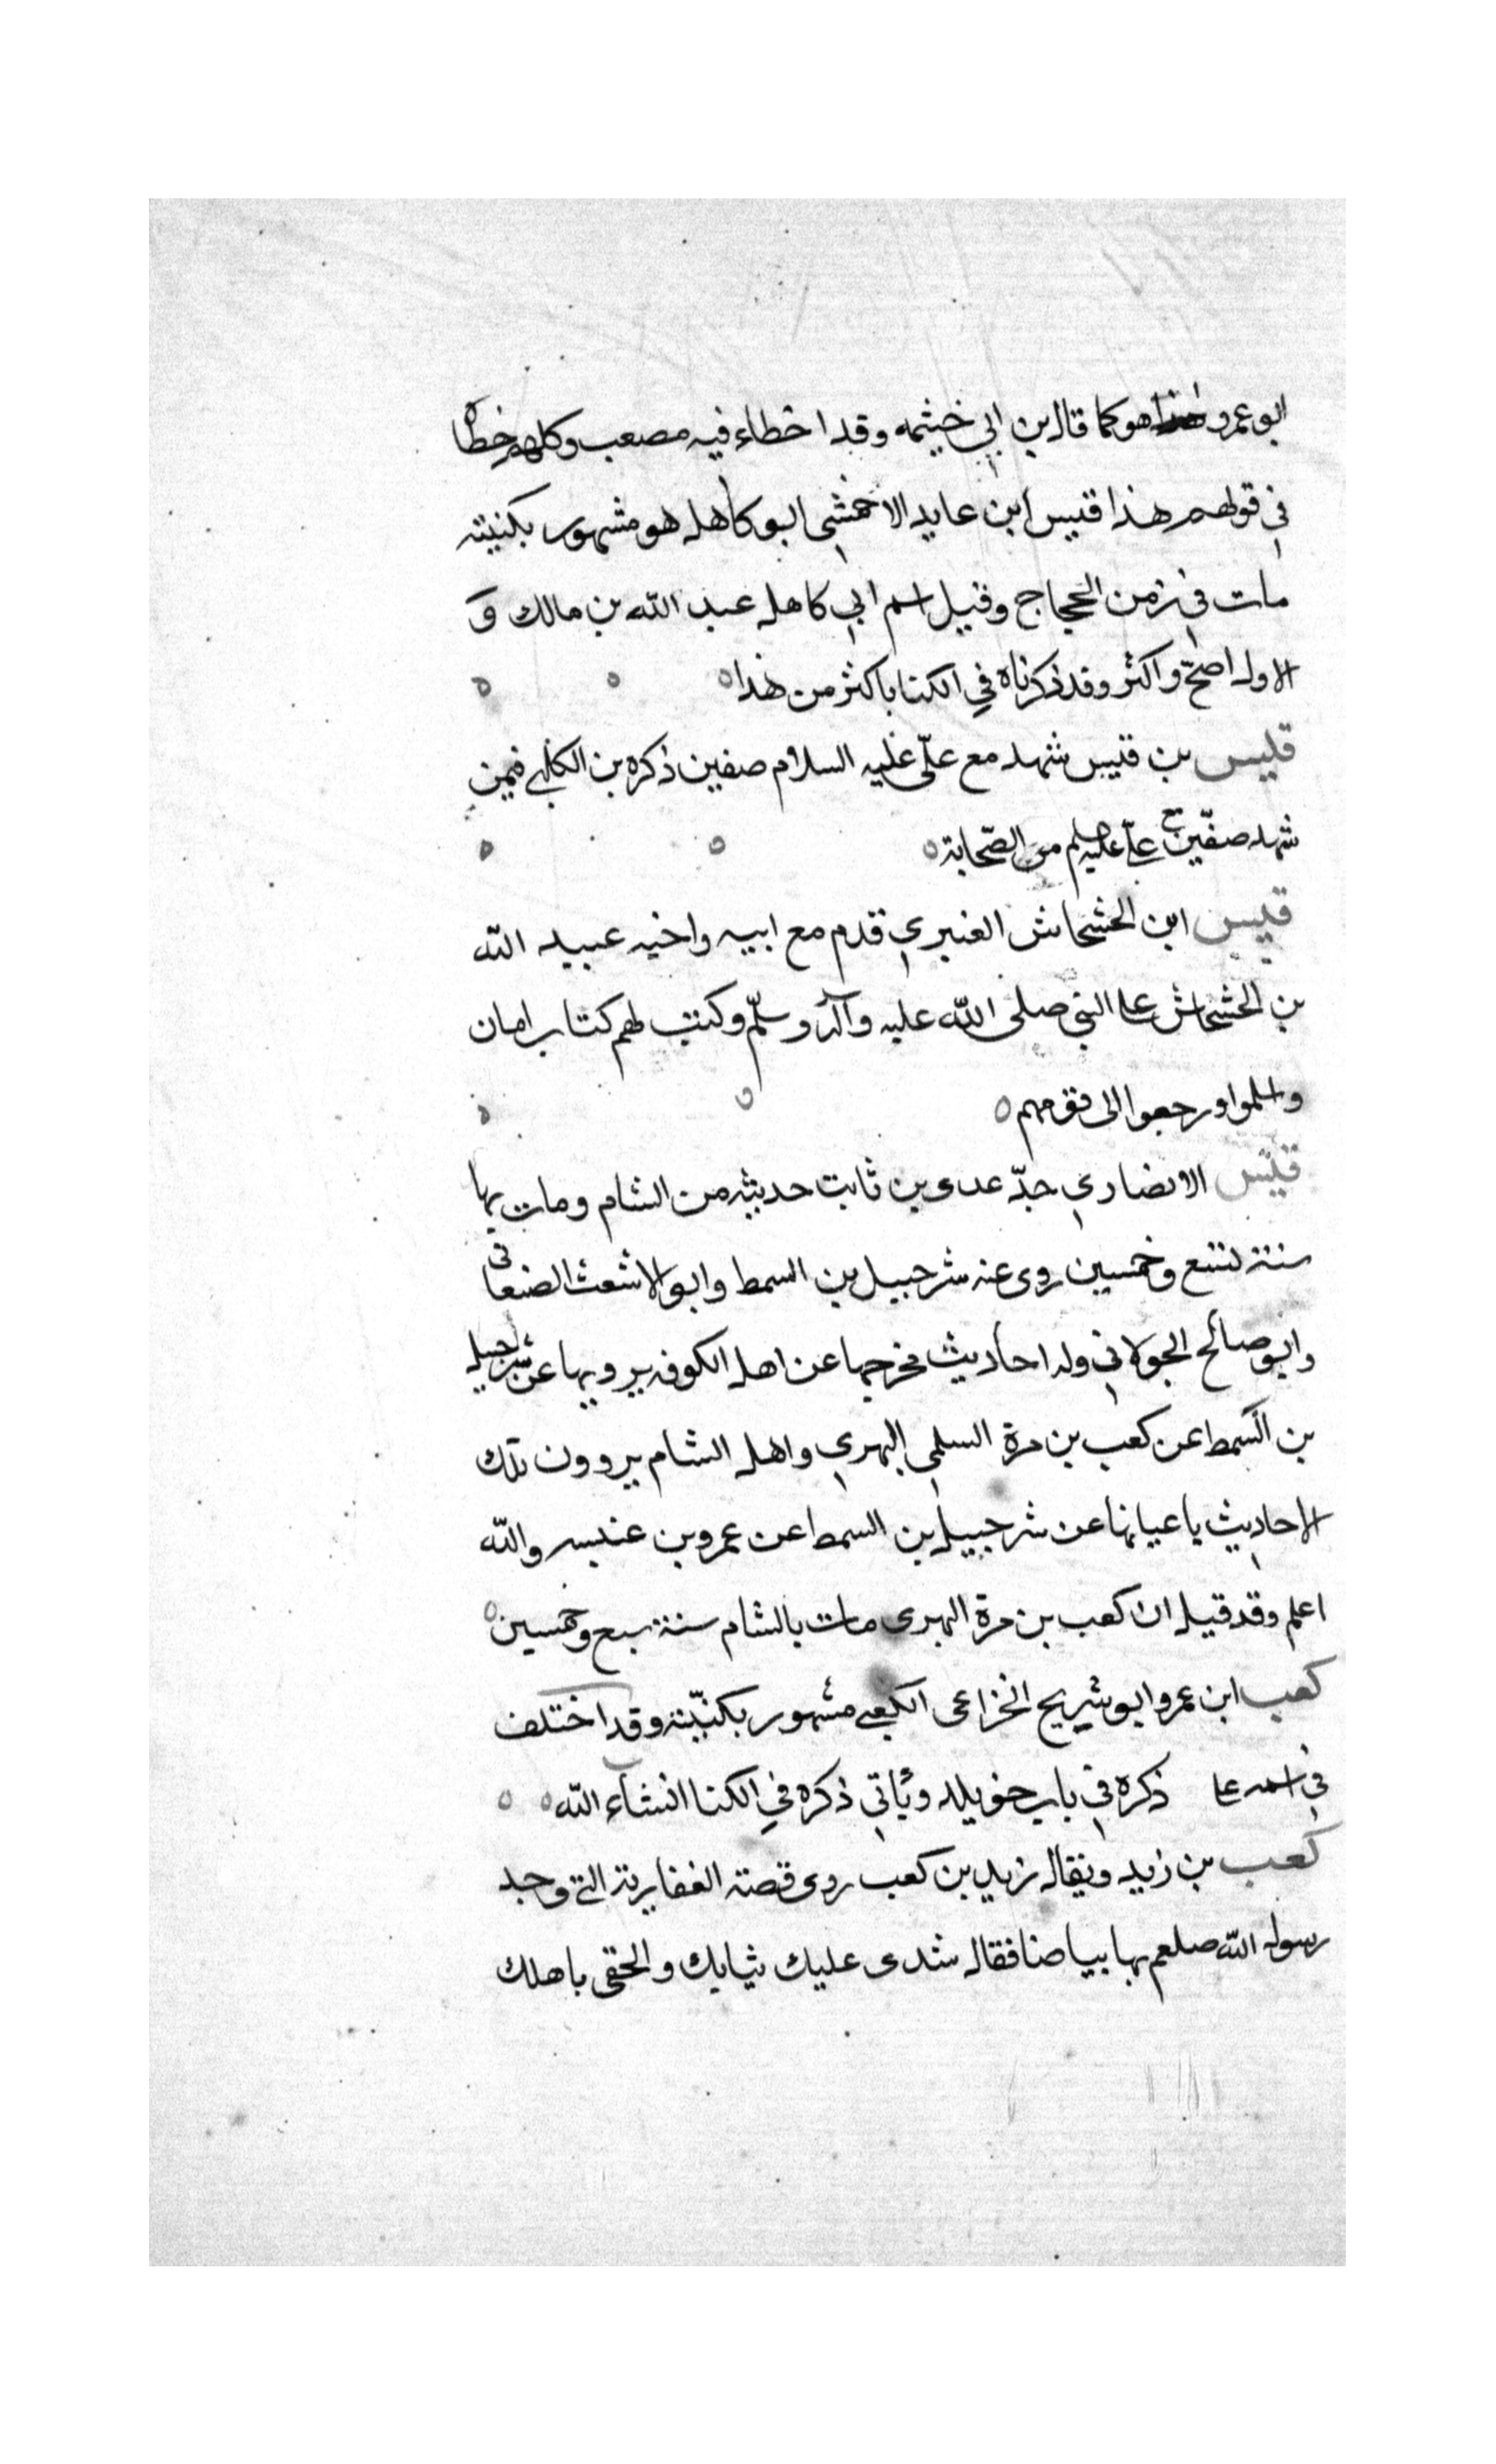 ابو عمرو هو كما قال بن ابي خيثمه وقد اخطاء فيه مصعب وكلهم خطأ
في قولهم هذا قيس ابن عايد الاخمشي ابو كاهل هو مشهور بكنيته
مات في زمن الحجاج وقيل اسم ابي كاهل عبد الله بن مالك و
الاول اصحّ واكثر وقد ذكرناه في الكنا باكثر من هذا
قيس بن قيس شهد مع علي عليه السلام صفين ذكره بن الكلبي فيمن
شهد صفّين مع علي عليه من الصّحابة
قيس ابن الخشخاش العنبري قدم مع ابيه واخيه عبيد الله
بن الخشخاش على النبي صلى الله عليه وآله وسلّم وكتب لهم كتاب امان
واسلموا ورجعوا الى قومهم
قيس الانصاري جدّ عدى بن ثابت حديثه من الشام ومات بها
سنة تسع وخمسين روى عنه شرحبيل بن السمط وابو الاشعث الصنعانى
وابو صالح الخولاني وله احاديث مخرجها عن اهل الكوفه يرويها عن شرحبيل
بن السمط عن كعب بن مرة السلمي البهري واهل الشام يروون تلك
الاحاديث باعيانها عن شرحبيل بن السمط عن عمرو بن عنبسه والله
اعلم وقد قيل ان كعب بن مرة البهرى مات بالشام سنة سبع وخمسين
كعب ابن عمرو ابو شريح الخزاعى الكعبي مشهور بكنيّته وقد اختلف
في اسمه على ذكره في باب خويلد ويأتي ذكره في الكنا انشآء الله
كعب بن زيد ويقال زيد بن كعب روى قصة الغفارية التي وجد
رسول الله صلعم بها بياضا فقال شدى عليك ثيابك والحقى باهلك